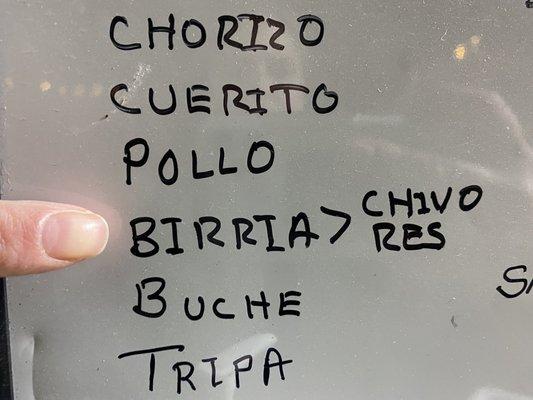 CHORIZO
CUERITO
POLLO
BIRRIA > CHIVO
RES
BUCHE
TRIPA